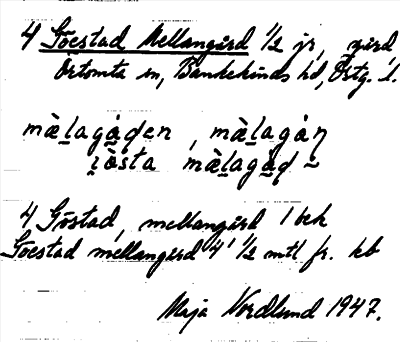 4 Göestad Mellangård 1/2 jr, gård
Örtomta sn, Bankekinds hd, Östg. l.
mὰḻagå̱den, mὰḻagå̱ṇ
i̱ὰsta mὰḻagå̱d ~
4 Göstad, mellangård 1 bek
Goestad mellangård 4' 1/2 mtl fr. kb
Maja Nordlund 1947.